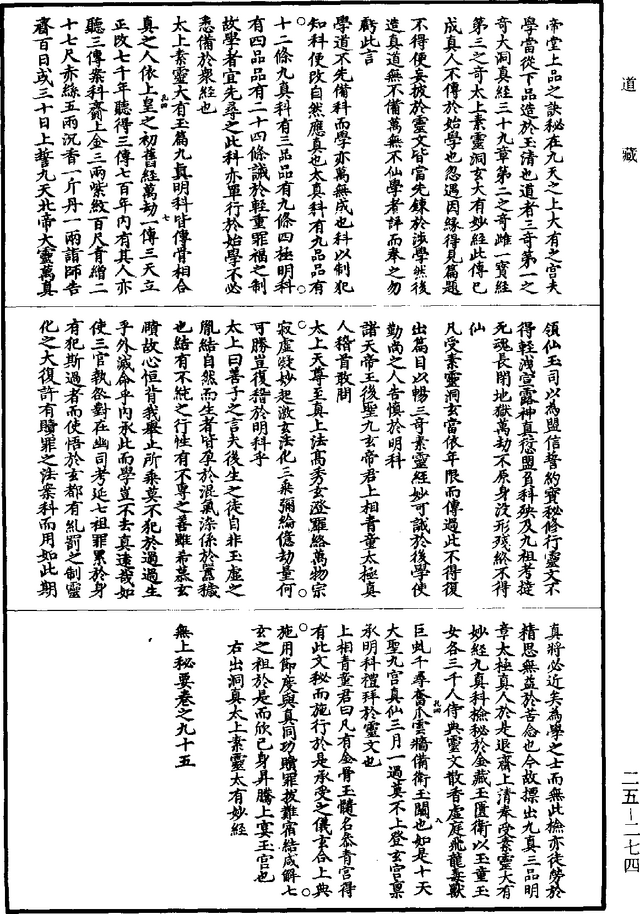 道藏
帝堂上品之訣秘在九天之上大有之宮夫
學當從下品造於玉清也道者三奇第一之
奇大洞真經三十九章第二之奇雌一寶經
第三之奇太上素靈洞玄大有妙經此傳已
成真人不傳於始學也忽遇因緣得見篇題
不得便妄披於靈文皆當先鍊於淺學然後
造真道無不備萬無不仙學者詳而奉之勿
虧此言
學道不先備科而學亦萬無成也科以制犯
知科便改自然應真也太真科有九品品有
十二條九真科有三品品有九條四極明科
有四品品有二十四條誡於輕重罪福之制
故學者宜先尋之此科亦單行於始學不必
悉備於衆經也
太上素靈大有玉篇九真明科皆傳骨相合
真之人依上皇之初舊經萬劫一傳三天立
正改七千年聽得三傳七百年內有其人亦
聽三傳案科齋上金三兩紫紋百尺青繒二
十七尺赤絲五兩沉香一斤丹一兩詣師告
齋百日或三十日上誓九天北帝大靈萬真
領仙玉司以為盟信誓約寶秘修行靈文不
得輕洩宣露神真愆盟負科殃及九祖考撻
死魂長閉地獄萬劫不原身沒形殘終不得
仙
凡受素靈洞玄當依年限而傳過此不得復
出篇目以暢三奇素靈經妙可誡於後學使
勤尚之人告慎於明科
諸天帝王後聖九玄帝君上相青童太極真
人稽首敢問
太上天尊至真上法高秀玄澄羅絡萬物宗
寂虛凝妙起激玄法化三乘彌綸億劫量何
可勝豈復稽於明科乎
太上曰善子之言夫後生之徒自非玉虛之
胤結自然而生者皆孕於混氣滌係於舊穢
也結有不純之行性有不專之善雖希慕玄
賾故心恒背我舉止所乘莫不犯於過過生
乎外滅命乎內承此而學豈不去真遠哉如
使三官執劾對在幽司考延七祖罪累於身
有犯斯過者而使悟於玄都有糺罰之制靈
化之大復許有贖罪之法案科而用如此期
真將必近矣為學之士而無此檢亦徒勞於
精思無益於苦念也今故摽出九真三品明
章太極真人於是退齋上清奉受素靈大有
妙經九真科檢秘於金藏玉匱衛以玉童玉
女各三千人侍典靈文散香虛庭飛龍毒獸
巨虬千尋奮爪雲牆備衛玉闕也如是十天
大聖九宮真仙三月一過莫不上登玄宮稟
承明科禮拜於靈文也
上相青童君曰凡有金骨玉髓名參青宮得
有此文秘而施行於是承受之儀玄合上典
施用節度與真同功贖罪拔難宿結咸解七
玄之祖於是而欣己身昇騰上宴玉宮也
右出洞真太上素靈大有妙經
無上秘要卷之九十五
二五－二七四